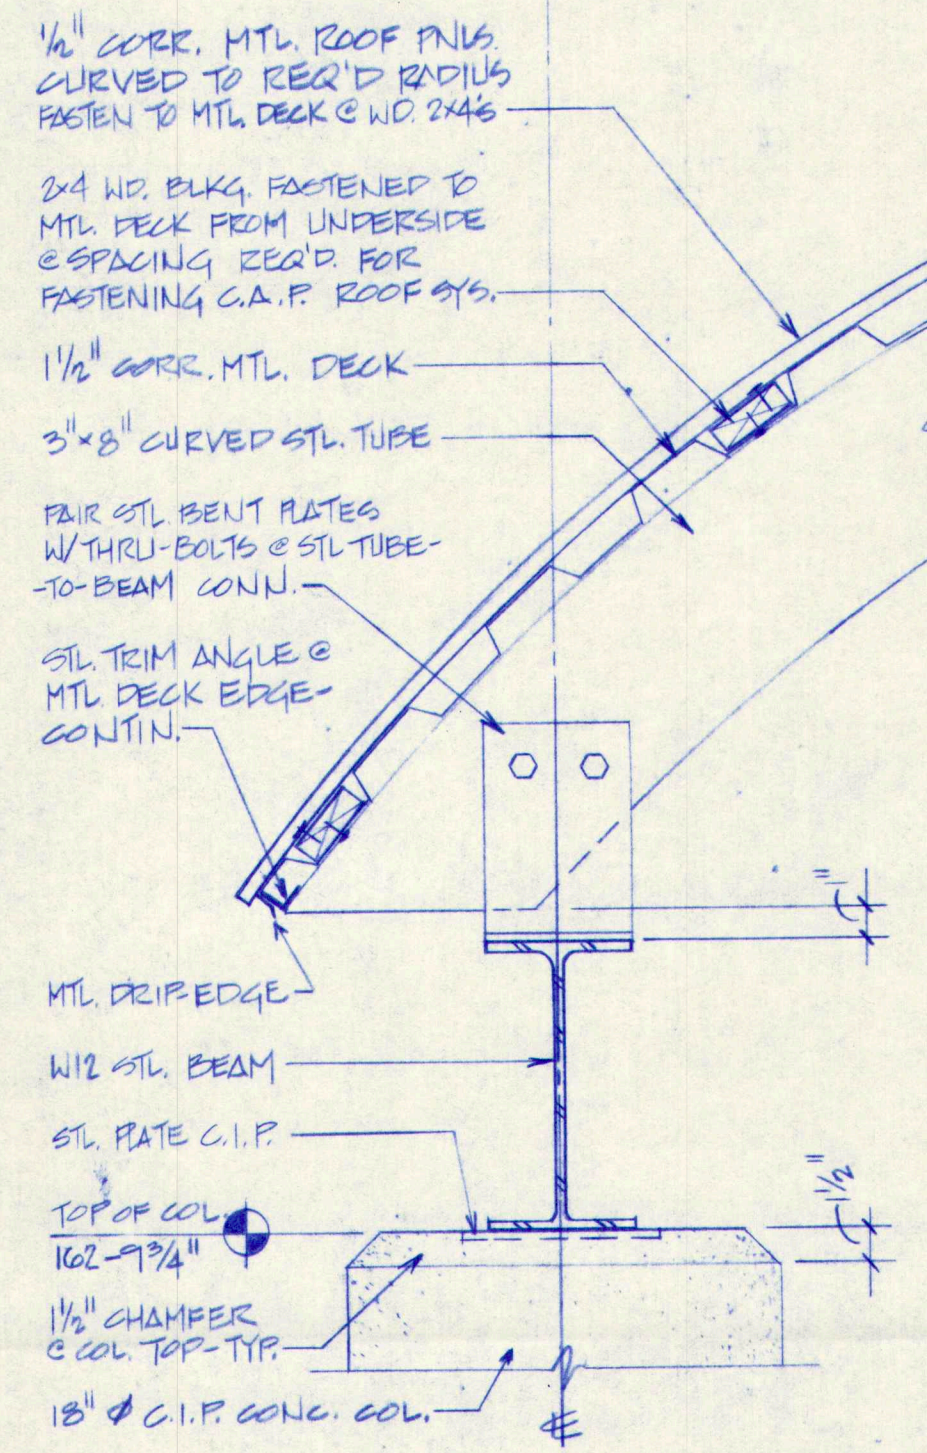 1/2" CORR. MTL. ROOF PNLS.
CURVED TO REQ'D RADIUS
FASTEN TO MTL. DECK @ WD. 2x4's
2x4 WD. BLKG. FASTENED TO
MTL. DECK FROM UNDERSIDE
@ SPACING REQ'D. FOR
FASTENING C.A.P. ROOF SYS.
1 1/2" CORR. MTL. DECK
3" x 8" CURVED STL. TUBE
FAIR STL. BENT PLATES
W/ THRU-BOLTS @ STL TUBE-
-TO-BEAM CONN.
STL. TRIM ANGLE @
MTL. DECK EDGE-
CONTIN.
1"
MTL. DRIP-EDGE
W12 STL. BEAM
STL. PLATE C.I.P.
1 1/2"
TOP OF COL.
162-9 3/4"
1 1/2" CHAMFER
@ COL. TOP-TYP.
18" Ø C.I.P. CONC. COL.